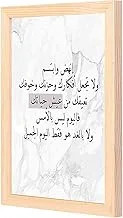 انهض وابتسم
ولا تجعل أفكارك وحزنك وخوفك
تعيقك من عيش حياتك
فاليوم ليس بالأمس
ولا بالغد هو فقط اليوم الجميل